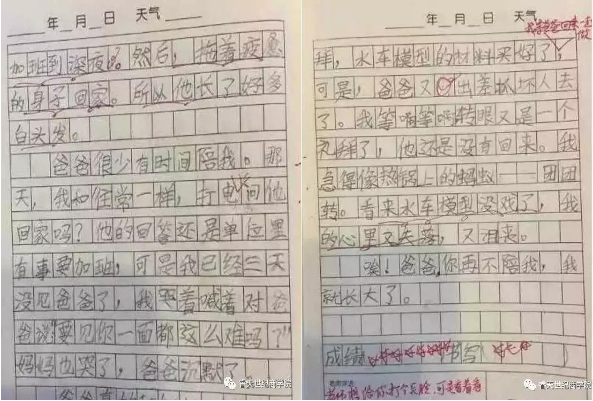 年 月 日 天气
加班到深夜。然后,拖着疲惫
的身子回家。所以他长了好多
白头发。
爸爸很少有时间陪我。那
天,我如往常一样,打电问他
回家吗?他的回答还是单位里
有事要加班,可是我已经三天
没见爸爸了,我哭着喊着对爸
爸说“要见你一面都这么难吗?”
妈妈也哭了,爸爸沉默了。
年 月 日 天气
拜,水车模型的材料买好了,
可是,爸爸又出差抓坏人去
了。我等啊等啊转眼又是一个
礼拜了,他还是没有回来。我
急得像热锅上的蚂蚁——团团
转。看来水车模型没戏了,我
的心里又失落,又泪丧。
唉!爸爸,你再不陪我,我
就长大了。
成绩 好好好好好好 书写 好
想给你打个笑脸,可是看着看着